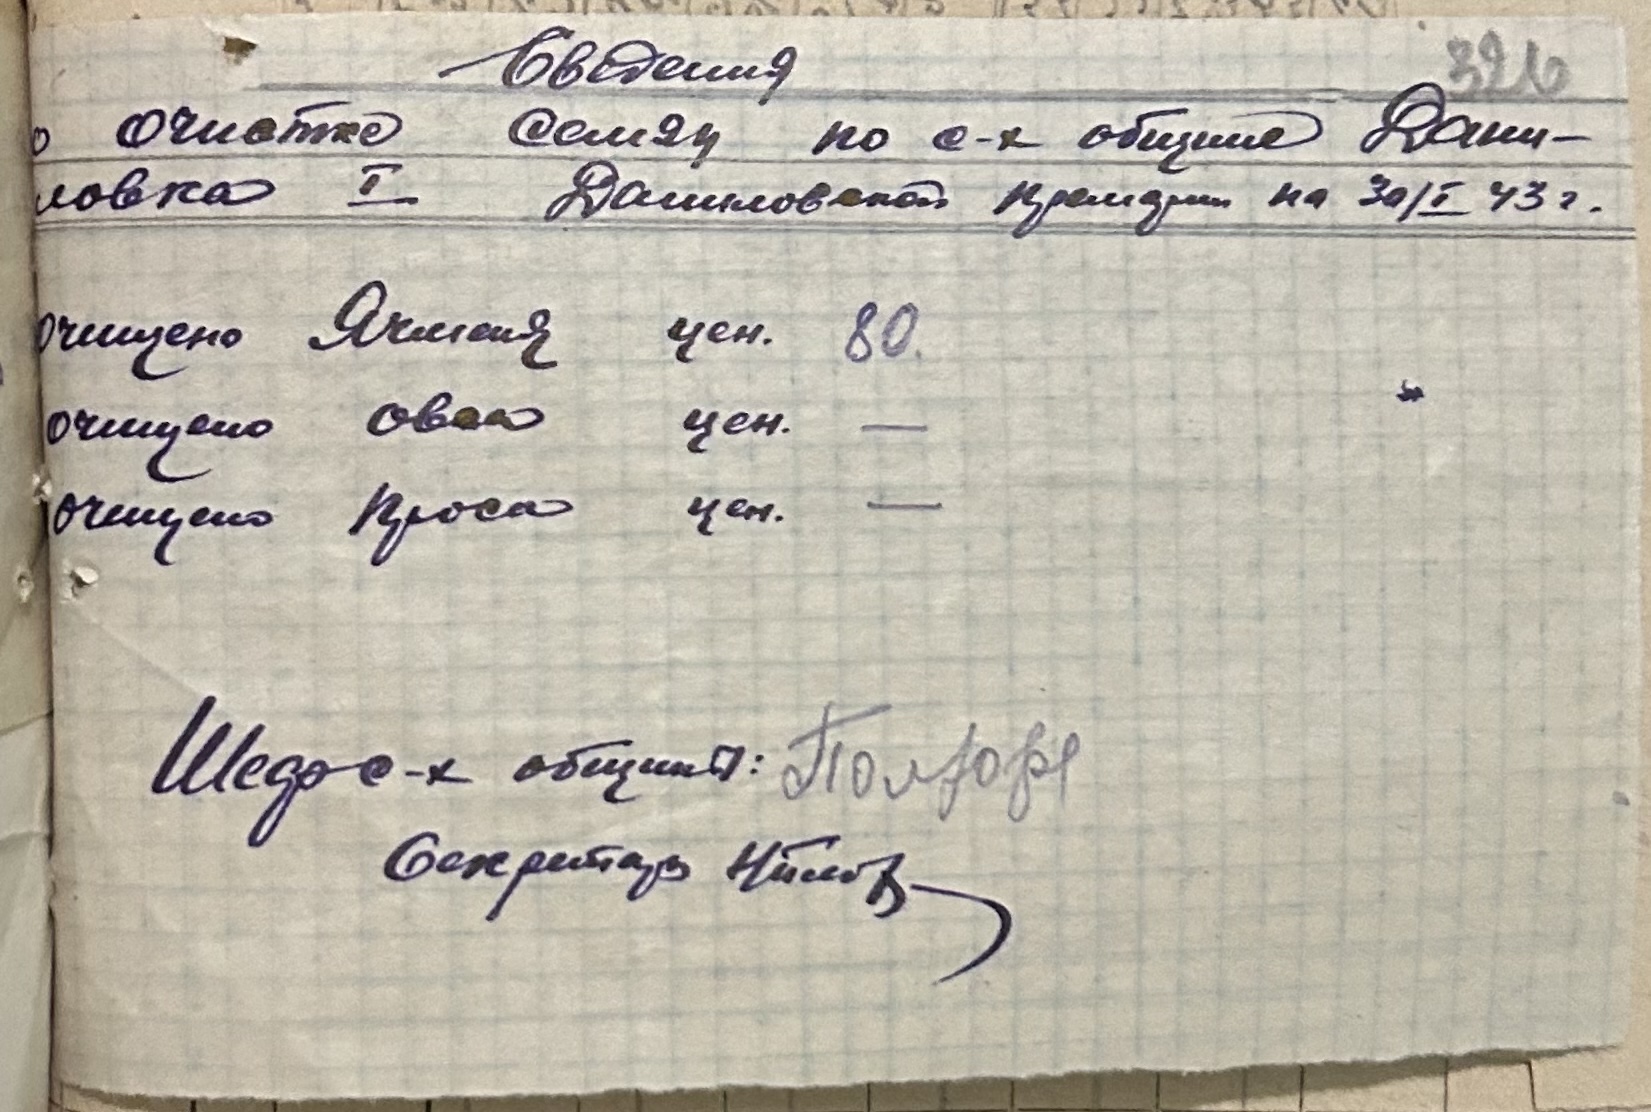 Сведения
326
о очистке семян по с-х общине Дани-
ловка I Даниловской на 30/I 43 г.
очищено Ячменя цен. 80.
очищено овса цен. —
очищено проса цен. —
с-х общины:
Секретарь